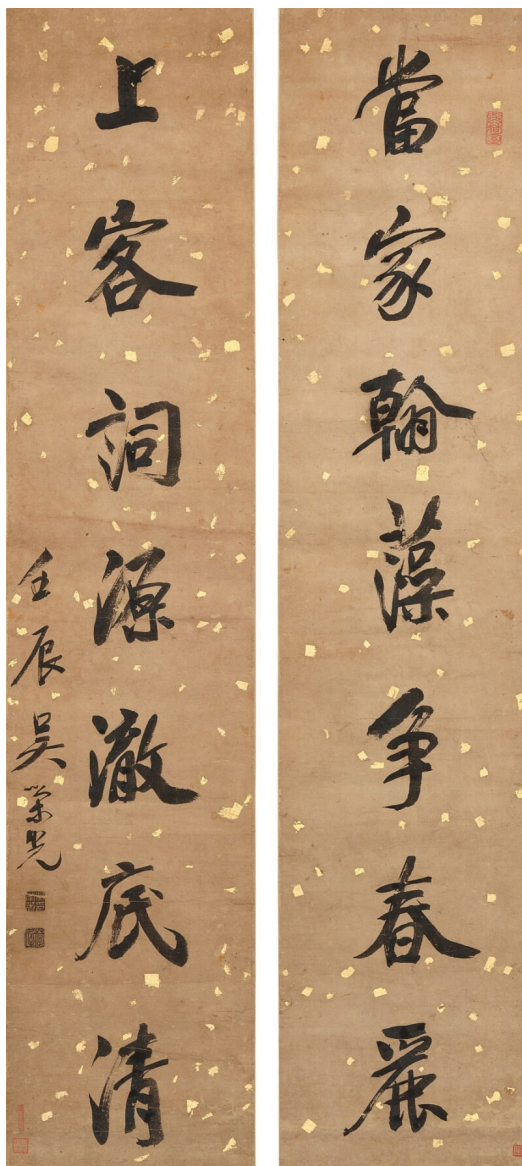 當家翰藻争春麗
上客詞源澈底清
壬辰吳榮光